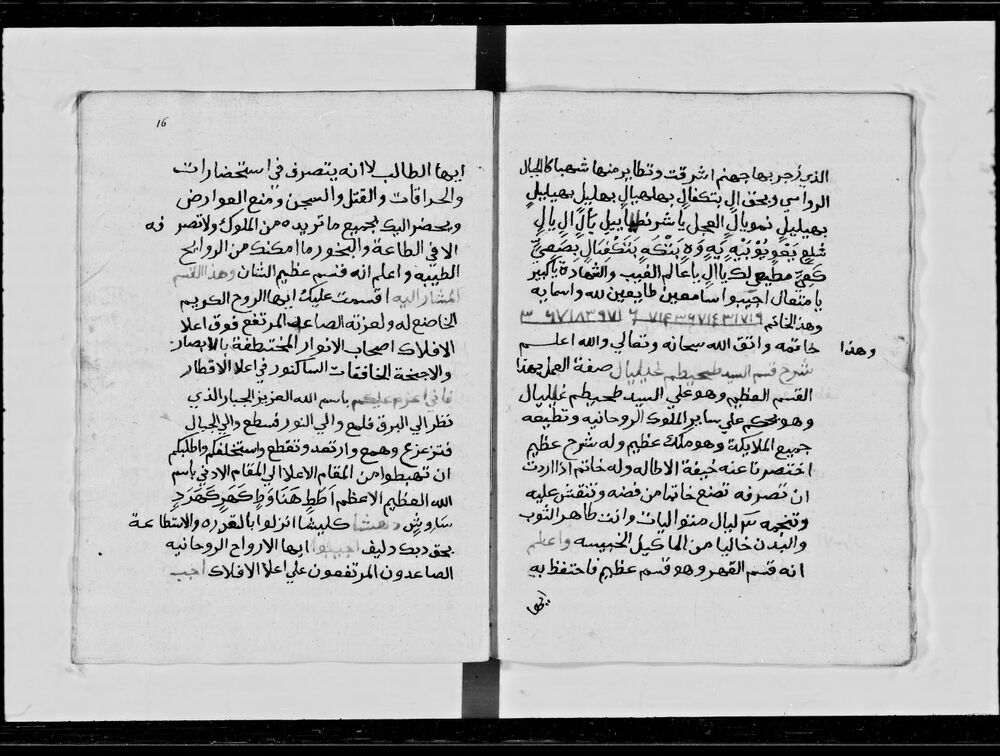 الذي زجر بها جهنم اشرقت وتطاير منها شهبا كالجبال
الرواسي وبحق ال بتكفال بهلهيال بهليل بهيليل
بهيليل نمويال العجل يا ال يال
لك يا ال يا عالم الغيب والشهادة يا كبير
يا متعال اجيبوا سامعين طايعين لله واسمايه
وهذا الخاتم
وهذا خاتمه واتق الله سبحانه وتعالي والله اعلم
شرح قسم السيد طحيطم غليليال صفة العمل بهذا
القسم العظيم وهو علي السيد طحيطم غليليال
وهو يحكم علي ساير الملوك الروحانيه وتطيعه
جميع الملايكة وهو ملك عظيم وله شرح عظيم
اختصرنا عنه خيفة الاطاله وله خاتم اذا اردت
ان تصرفه تصنع خاتما من فضه وتنقش عليه
وتنجمه ليال متواليات وانت طاهر الثوب
والبدن خاليا من الماكيل الخبيسه واعلم
انه قسم القهر وهو قسم عظيم فاحتفظ به
ايها
16
ايها الطالب لانه يتصرف في استحضارات
والحراقات والقتل والسجن ومنع العوارض
ويحضر اليك بجميع ما تريده من الملوك ولا تصرفه
الا في الطاعة والبخور ما امكنك من الروايح
الطيبه واعلم انه قسم عظيم الشان وهذا القسم
المشار اليه اقسمت عليك ايها الروح الكريم
الخاضع له ولعزته الصاعد المرتفع فوق اعلا
الافلاك اصحاب الانوار المختطفة بالابصار
والاجنحة الخافقات الساكنون في اعلا الاقطار
فاني اعزم عليكم باسم الله العزيز الجبار الذي
نظر الي البرق فلمع والي النور فسطع والي الجبال
فتزعزع وهمع وارتعد وتقطع واستخلفكم واطلبكم
ان تهبطوا من المقام الاعلا الي المقام الادني باسم
الله العظيم الاعظم
كليشا انزلوا بالقدره والاستطاعة
بحق دبك دليف اجيبوا ايها الارواح الروحانيه
الصاعدون المرتفعون علي اعلا الافلاك اجب